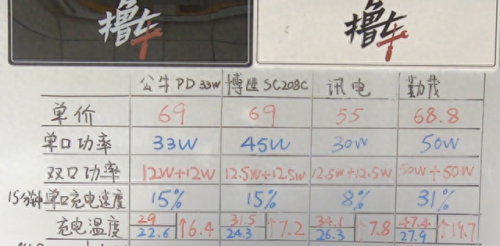 撸车 撸车
公牛PD33W 博世SC208C 讯电 勤茂
单价 69 69 55 68.8
单口功率 33W 45W 30W 50W
双口功率 12W+12W 12.5W+12.5W 12.5W+12.5W 50W+50W
15分钟单口充电速度 15% 15% 8% 31%
充电温度 29 22.6 ↑6.4 31.5 24.3 ↑7.2 34.1 26.3 ↑7.8 47.4 27.9 ↑19.7